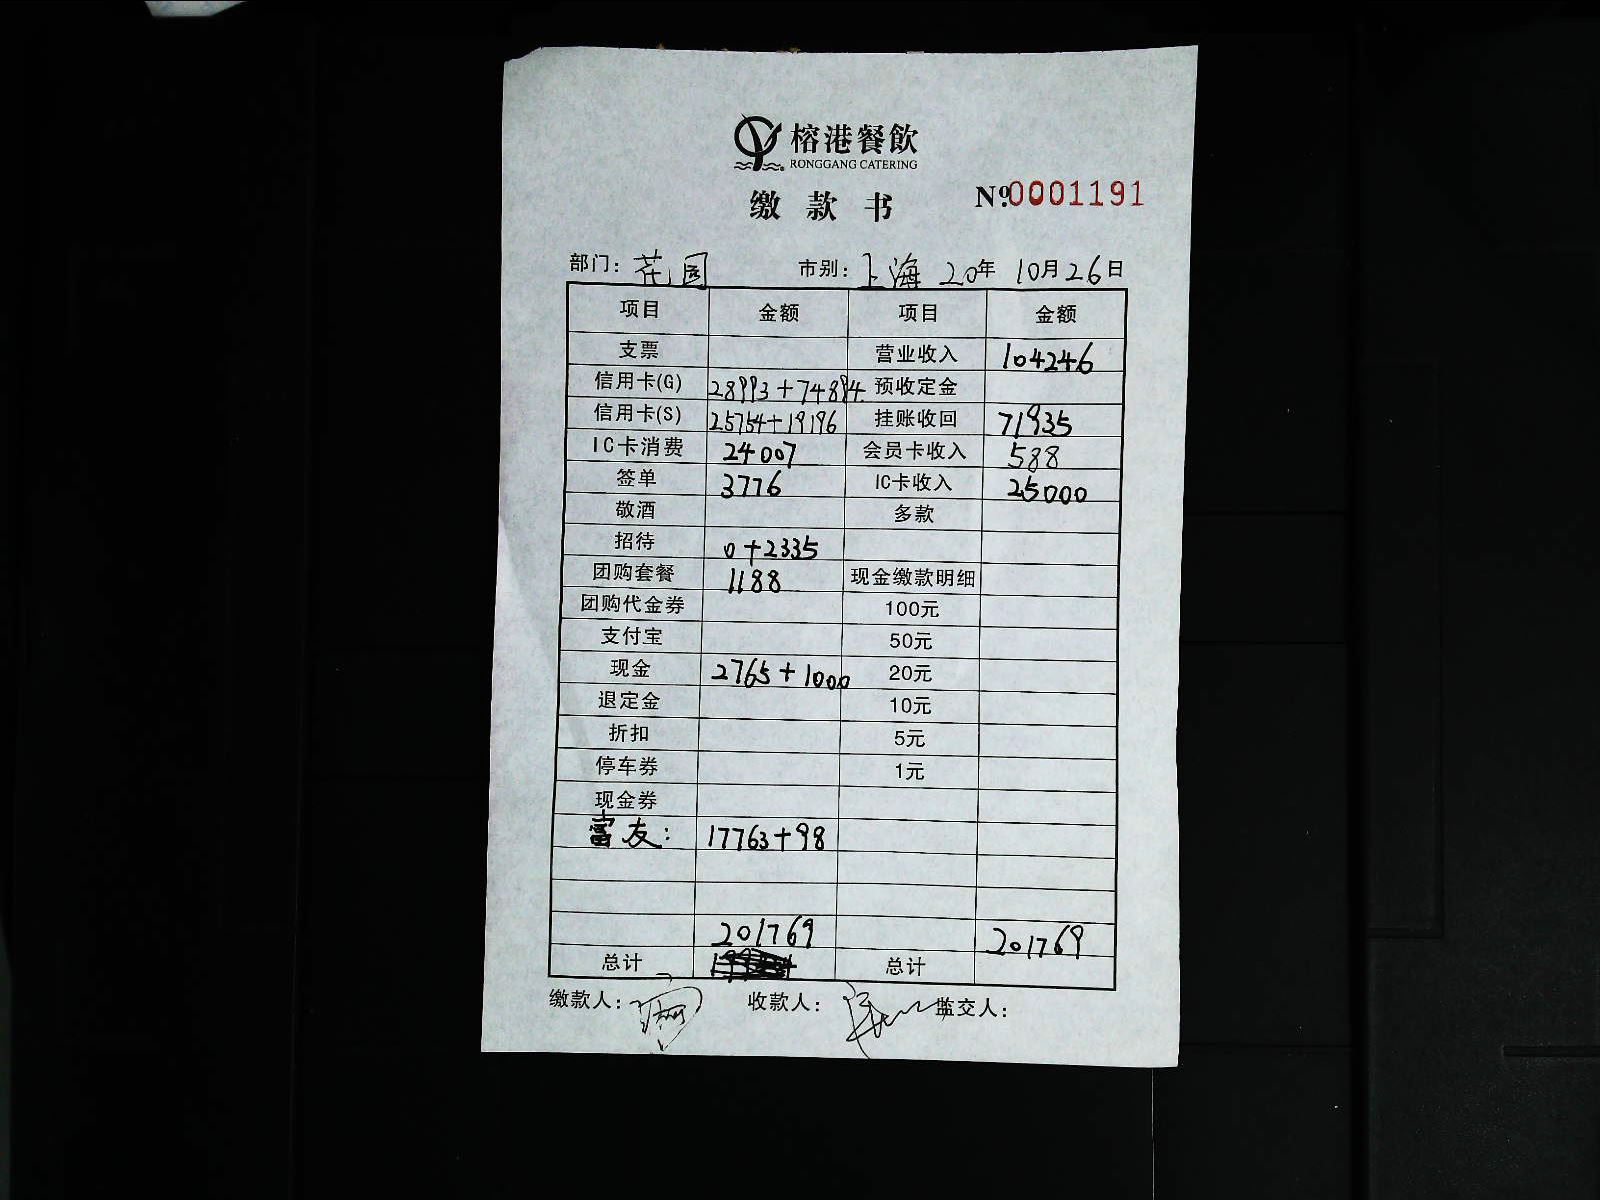 榕港餐飲
RONGGANG CATERING
缴款书 Nº.0001191
部门：花园 市别：上海 20年 10月26日
项目 金额 项目 金额
支票 营业收入 104246
信用卡(G) 28993+74894 预收定金
信用卡(S) 25754+19196 挂账收回 71935
IC卡消费 24007 会员卡收入 588
签单 3776 IC卡收入 25000
敬酒 多款
招待 0+2335
团购套餐 1188 现金缴款明细
团购代金券 100元
支付宝 50元
现金 2765+1000 20元
退定金 10元
折扣 5元
停车券 1元
现金券
富友： 17763+98
201769 201769
总计 总计
缴款人： 收款人： 监交人：